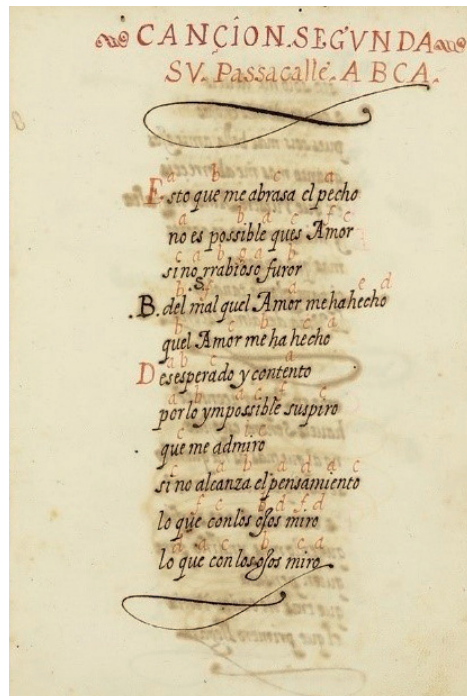 CANÇÍON. SEGVNDA
SV. Passacalle. A B C A.
a b c a
Esto que me abrasa el pecho
a b a c f c
no es possible ques Amor
c a b a b
sino rrabioso furor
a e d
.B. del mal quel Amor me ha hecho
b c b c a
quel Amor me ha hecho
a b c a
Desesperado y contento
a b a c f c
por lo ympossible suspiro
c c
que me admiro
c a b a d a c
si no alcanza el pensamiento
f c b d f d
lo que con los ojos miro
a a c b c a
lo que con los ojos miro